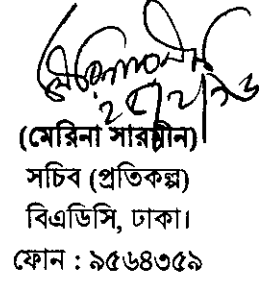 (মেরিনা সারমীন)
সচিব (প্রতিকল্প)
বিএডিসি, ঢাকা।
ফোন : ৯৫৬৪৩৫৯